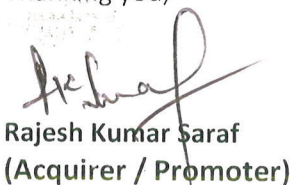 Rajesh Kumar Saraf
(Acquirer / Promoter)